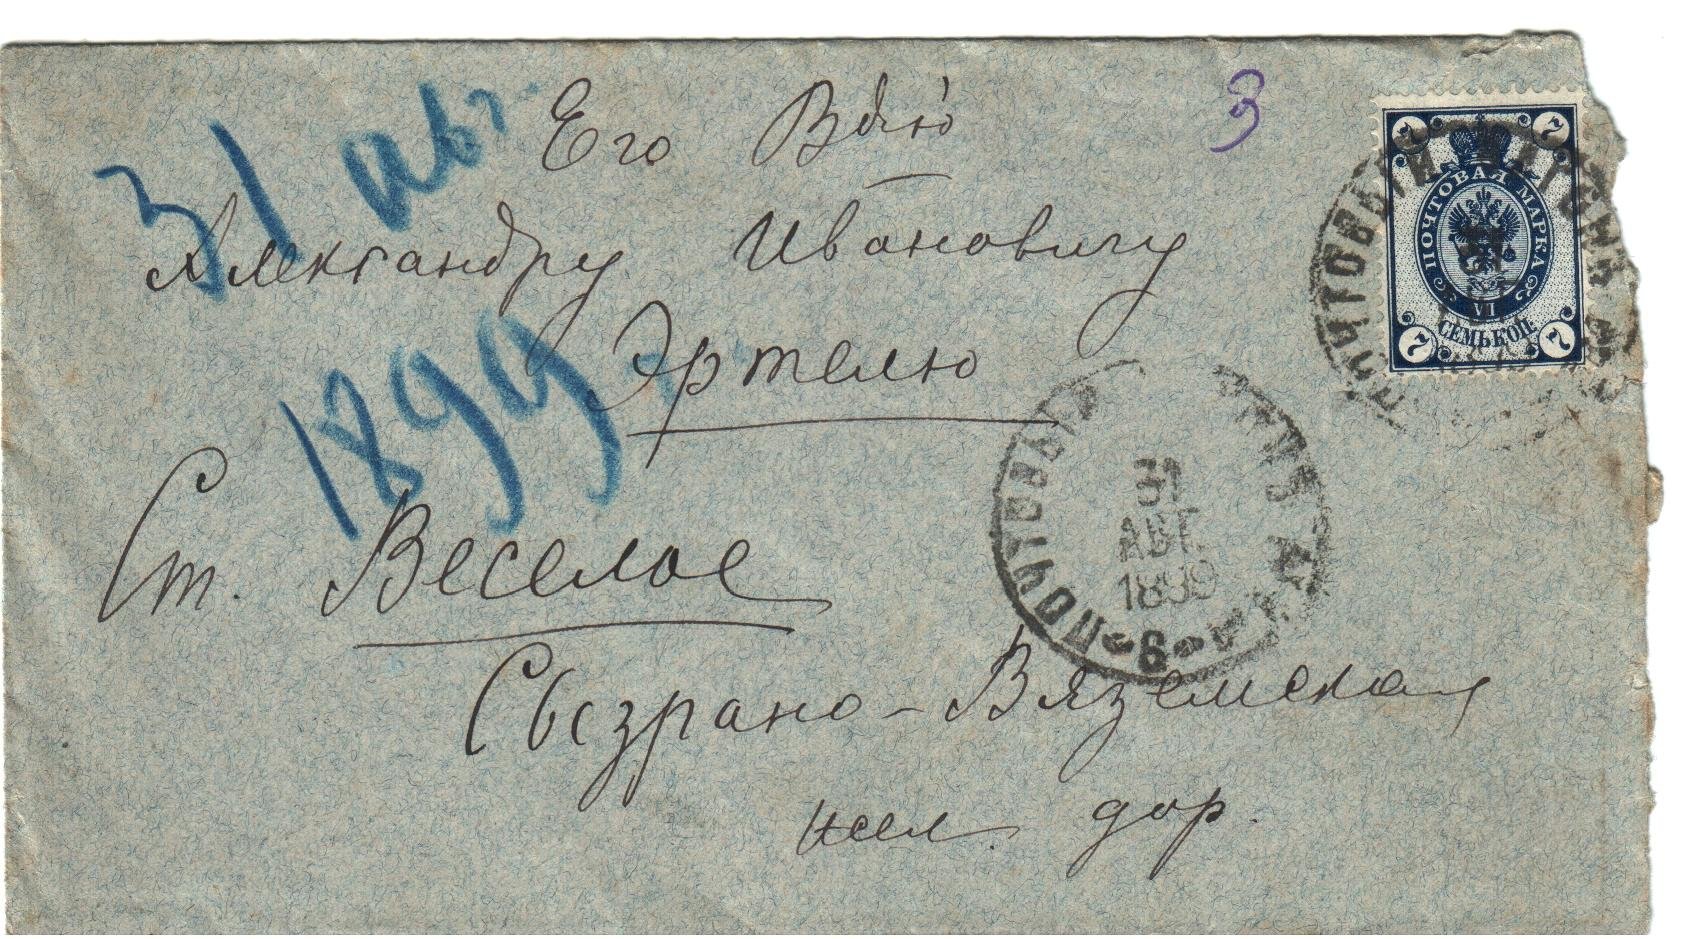 Его Вбїю
3
31 авг.
Александру Ивановичу
Эртелю
1899
Ст. Веселое
Сызрано-Вяземская
жел. дор.
7 7
ПОЧТОВАЯ МАРКА
VII
СЕМЬ КОП.
7 7
ПОЧТОВЫЙ
31
АВГ.
1899
6
ПОЧТОВЫЙ ВАГОНЪ